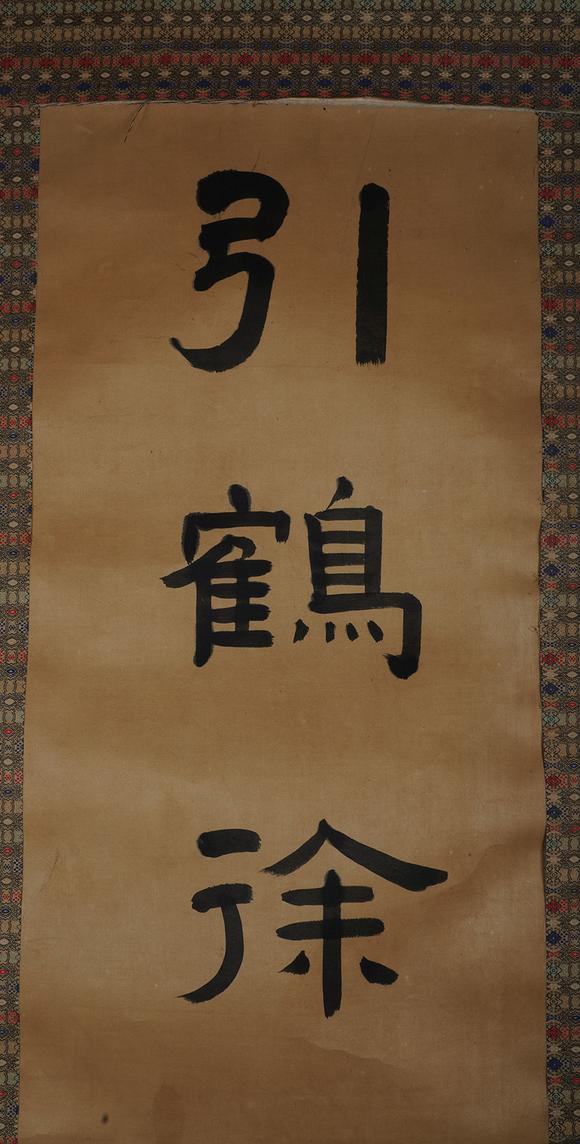 引鶴徐